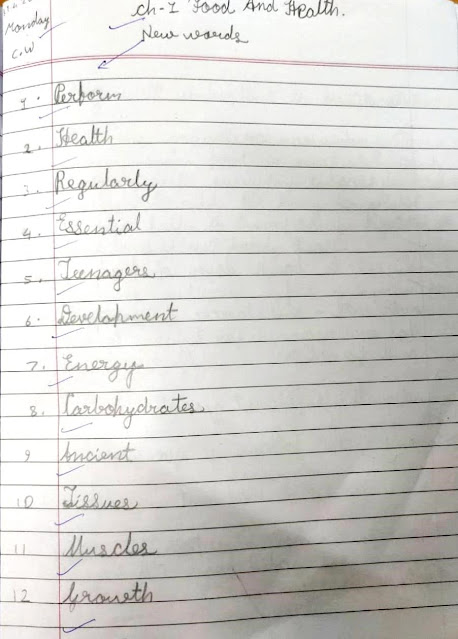 Monday
C.W
Ch-1 Food And Health.
New words
1. Perform
2. Health
3. Regularly
4. Essential
5. Teenagers
6. Development
7. Energy
8. Carbohydrates
9 Ancient
10 Tissues
11 Muscles
12 Growth